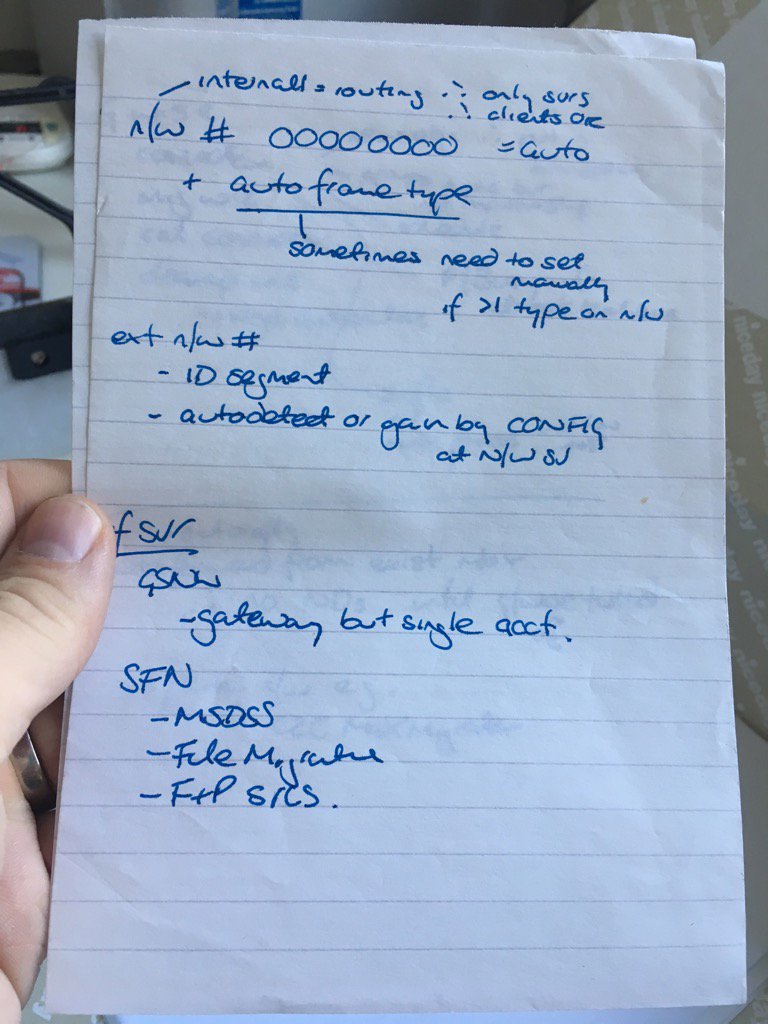 internall = routing ∴ only survs
∴ clients OK
n/w # 00000000 = auto
+ auto frame type
sometimes need to set
manually
if >1 type on n/w
ext n/w #
- ID segment
- autodetect or gain by CONFIG
at N/W SV
fsvr
GSNW
- gateway but single acct.
SFN
- MSDSS
- File Migration
- F+P SVCS.
niceday